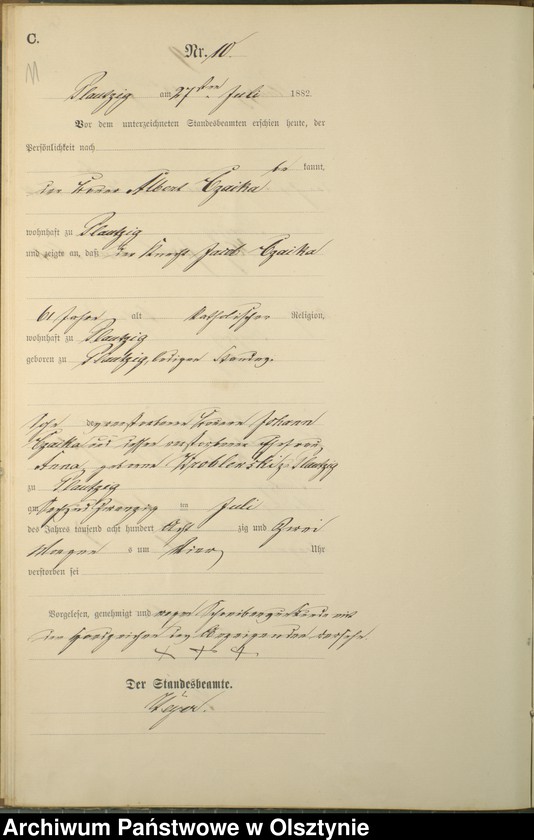 C.
Nr. 10.
11
Plautzig am 27ten Juli 1882.
Vor dem unterzeichneten Standesbeamten erschien heute, der
Persönlichkeit nach
be kannt,
der Albert Czaika
wohnhaft zu Plautzig
und zeigte an, daß der Knecht Jacob Czaika
61 Jahre alt katholischer Religion,
wohnhaft zu Plautzig
geboren zu Plautzig, ledigen Standes.
Sohn des verstorbenen Johann
Czaika und dessen verstorbene Ehefrau
Anna, geborene Wroblewski, Plautzig
zu Plautzig
am Juli
des Jahres tausend acht hundert Acht zig und Zwei
Morgen s um Vier Uhr
verstorben sei
Vorgelesen, genehmigt und wegen mit
den Handzeichen des Anzeigenden versehn.
+ + +
Der Standesbeamte.
Archiwum Państwowe w Olsztynie